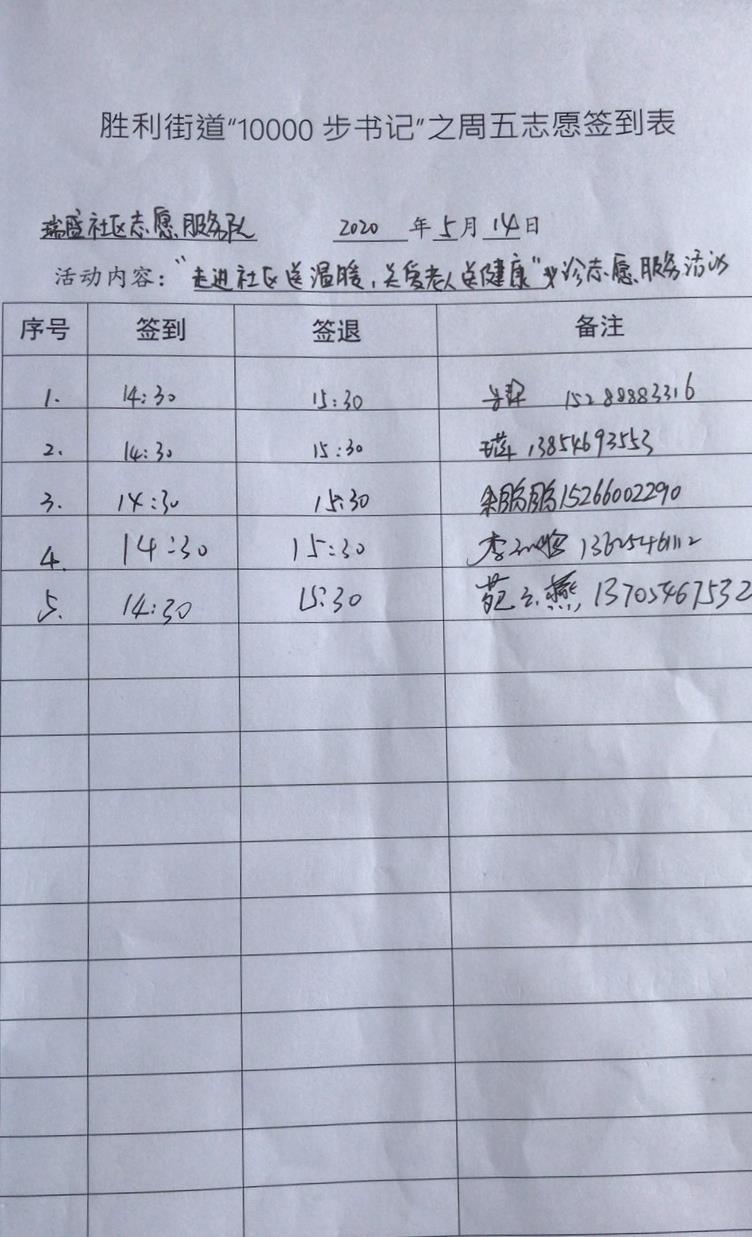 胜利街道“10000 步书记”之周五志愿签到表
瑞盛社区志愿服务队 2020 年 5 月 14 日
活动内容：“走进社区送温暖，关爱老人送健康”义诊志愿服务活动
序号 签到 签退 备注
1. 14:30 15:30 15288883316
2. 14:30 15:30 13854693553
3. 14:30 15:30 鹏鹏 15266002290
4. 14:30 15:30 李
5. 14:30 15:30 范云燕 13705467532